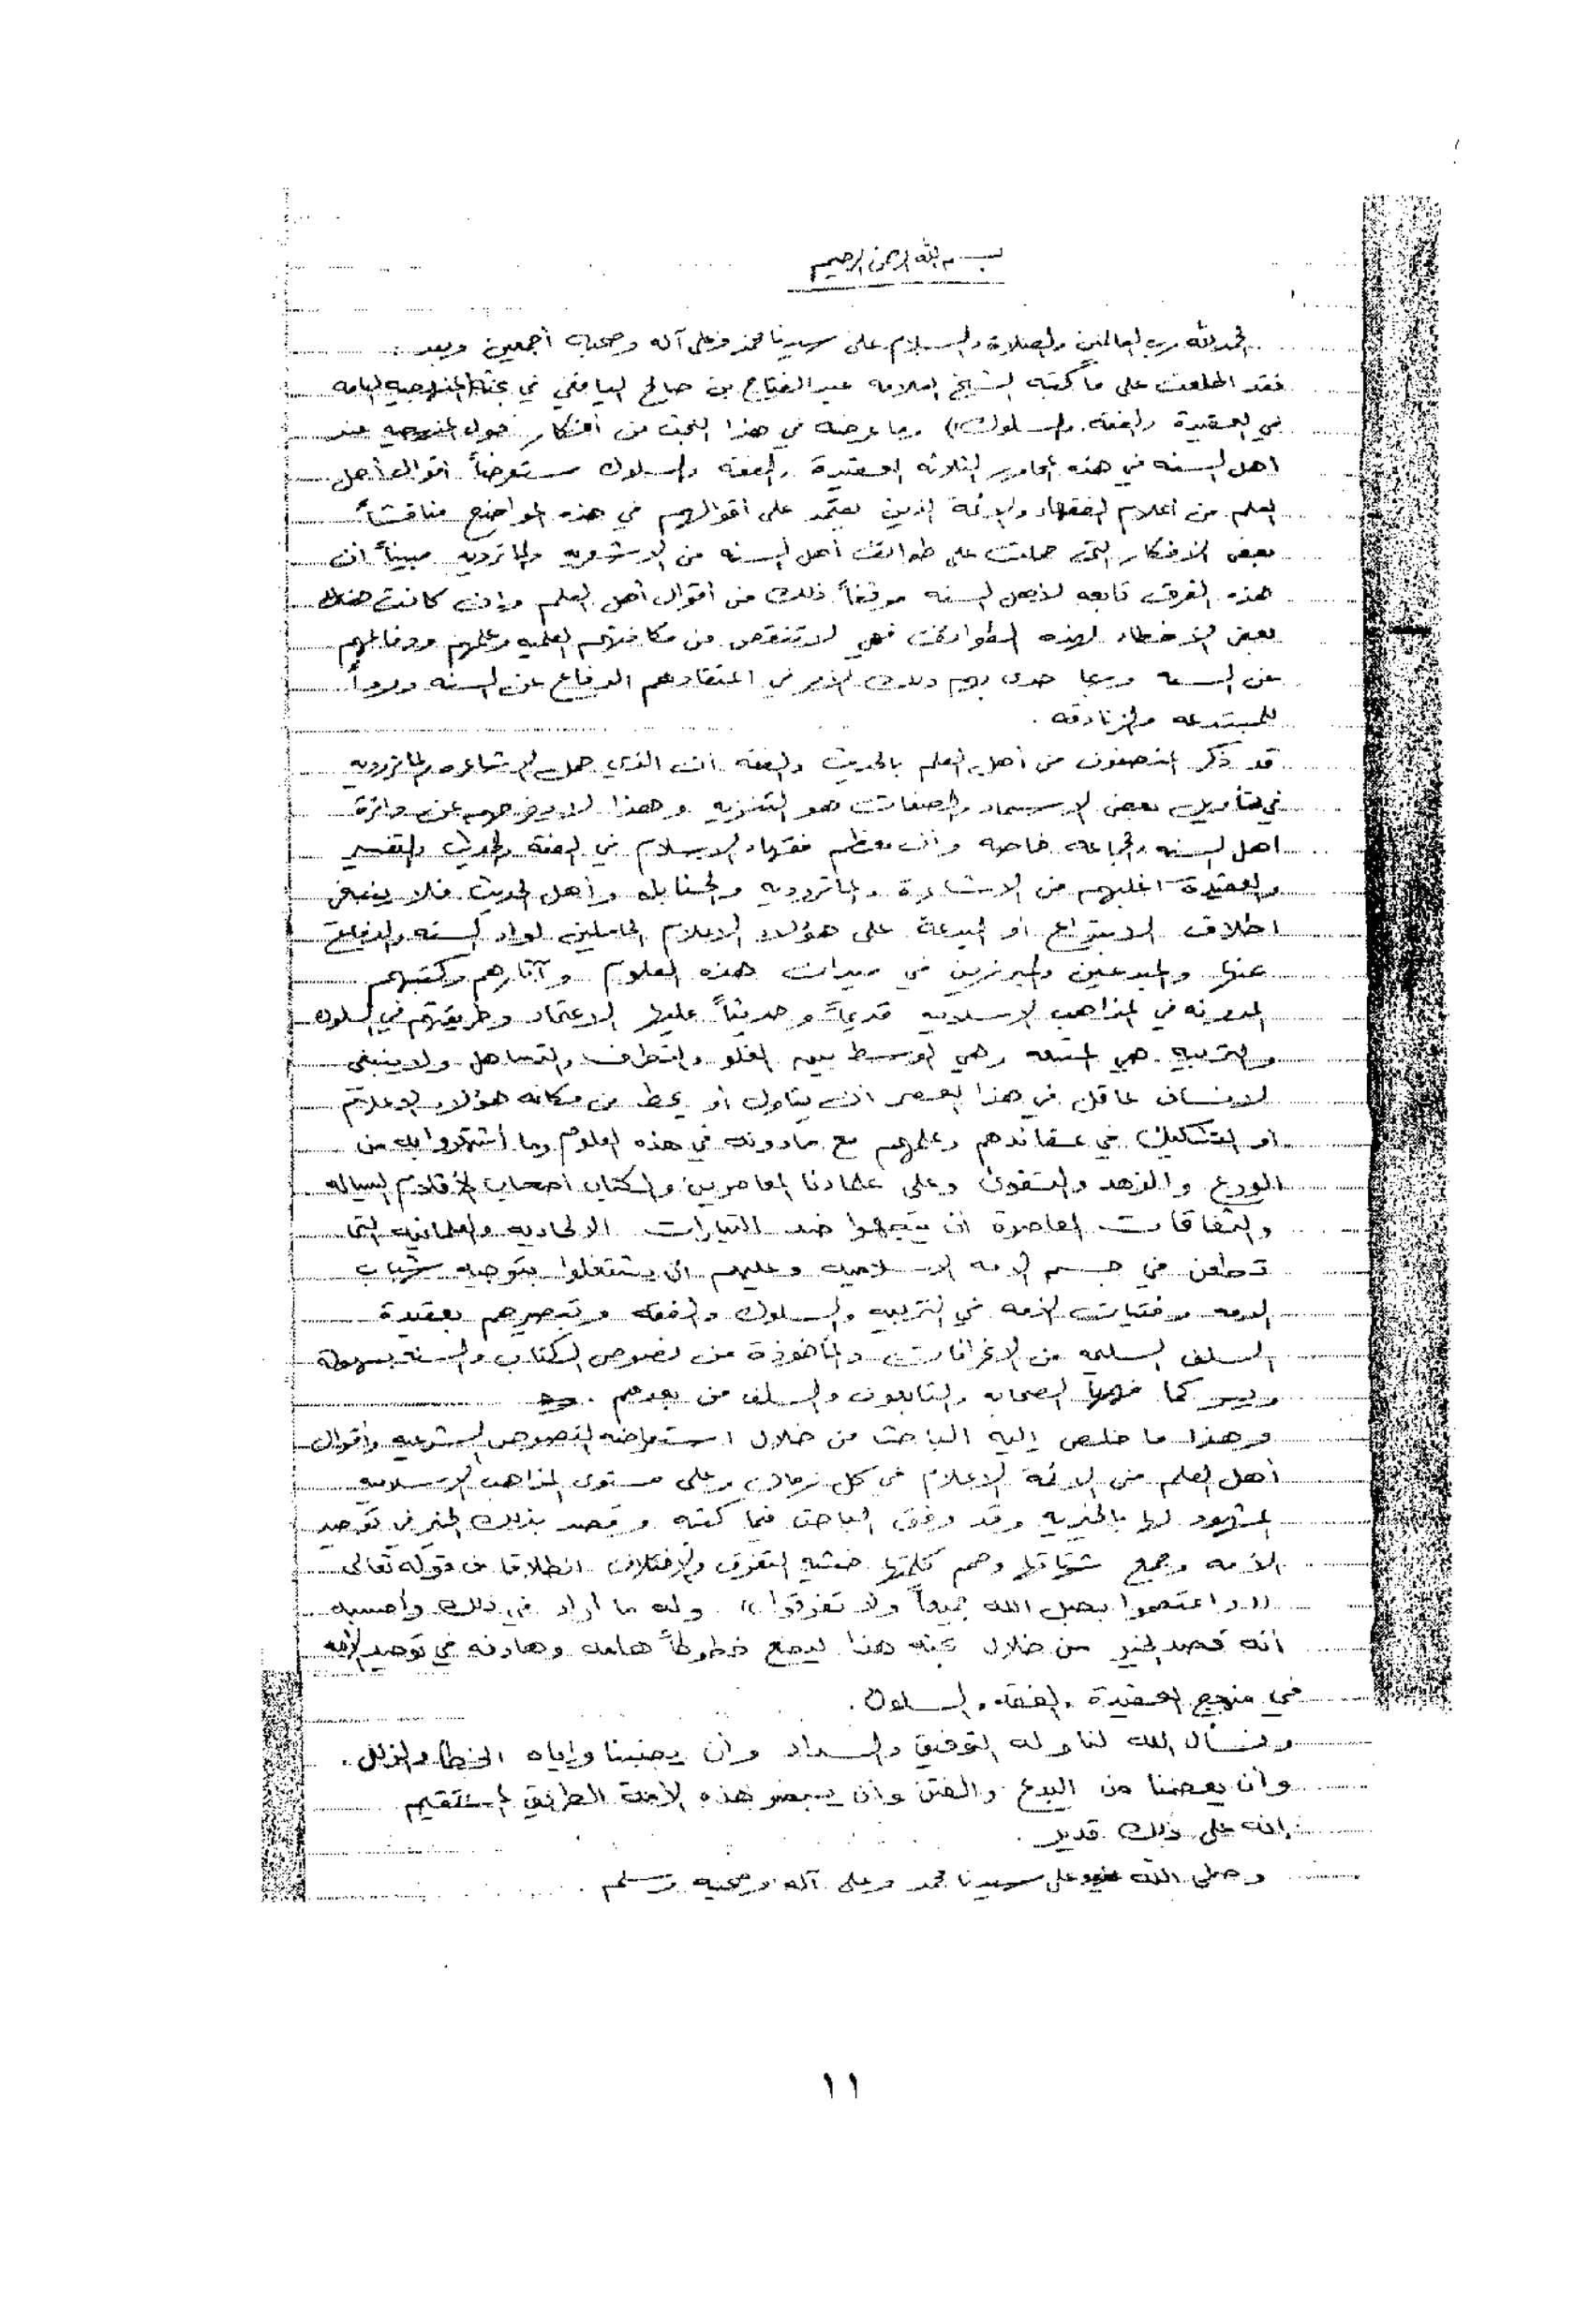 بسم الله الرحمن الرحيم
الحمد لله رب العالمين والصلاة والسلام على سيدنا محمد وعلى آله وصحبه أجمعين وبعد :
فقد اطلعت على ما كتبه الشيخ العلامه عبد الفتاح بن صالح اليافعي في بحثه ((المنهجيه العامه
في العقيدة والفقه والسلوك)) وما عرضه في هذا البحث من أفكار حول المنهجيه عند
اهل السنه في هذه المحاور الثلاثه العقيدة والفقه والسلوك مستعرضاً أقوال أهل
العلم من أعلام الفقهاء والائمة الذين يعتمد على أقوالهم في هذه المواضيع مناقشاً
بعض الافكار التي حملت على طوائف أهل السنه من الاشعريه والماتريديه مبيناً ان
هذه الفرق تابعه لأهل السنه موثقاً ذلك من أقوال أهل العلم وان كانت هناك
بعض الأخطاء لهذه الطوائف فهي لا تنتقص من مكانتهم العلميه وعلمهم ودفاعهم
عن السنه وربما حدى بهم ذلك الأمر في اعتقادهم الدفاع عن السنه ودوراً
للمبتدعه والزنادقه .
قد ذكر المنصفون من أهل العلم بالحديث والفقه ان الذي حمل الاشاعره والماتريديه
في تأويل بعض الاسماء والصفات هو التنزيه وهذا لا يخرجهم عن دائرة
اهل السنه والجماعه خاصه وأن معظم فقهاء الاسلام في الفقه والحديث والتفسير
والعقيدة اغلبهم من الاشاعرة والماتريديه والحنابله وأهل الحديث فلا ينبغي
اطلاق الابتداع أو البدعة على هؤلاء الاعلام الحاملين لواء السنه والدفاع
عنها والمبدعين والمبرزين في ميدان هذه العلوم وآثارهم وكتبهم
المدونه في المذاهب الاسلاميه قديماً وحديثاً عليها الاعتماد وطريقتهم في السلوك
والتربيه هي المتبعه وهي الوسط بين الغلو والتطرف والتساهل ولا ينبغي
لإنسان عاقل في هذا العصر ان يتناول أو يحط من مكانه هؤلاء الاعلام
او التشكيك في عقائدهم وعلمهم مع مادونه في هذه العلوم وما أشتهروا به من
الورع والزهد والتقوى وعلى علماءنا المعاصرين والكتاب أصحاب الأقلام السياله
والثقافات المعاصرة ان يتجهوا ضد التيارات الالحاديه والعلمانيه التي
تطعن في جسم الامه الاسلاميه وعليهم ان يشتغلوا بتوجيه شباب
الامه وفتيات الامه في التربيه والسلوك والفقه وتبصيرهم بعقيدة
السلف السليمه من الانحرافات والمأخوذة من نصوص الكتاب والسنه بسهولة
ويسر كما فهمها الصحابه والتابعون والسلف من بعدهم .
وهذا ما خلص إليه الباحث من خلال استعراضه للنصوص الشرعيه واقوال
أهل العلم من الائمة الاعلام في كل زمان وعلى مستوى المذاهب الاسلاميه
المشهود لها بالخيريه وقد وفق الباحث فيما كتبه وقصد بذلك الخير في توحيد
الأمه وجمع شتاتها وضم كلمتها خشيه التفرق والاختلاف انطلاقا من قوله تعالى
((واعتصموا بحبل الله جميعاً ولا تفرقوا)) وله ما أراد في ذلك وأحسبه
أنه قصد الخير من خلال بحثه هذا ليضع خطوطاً هامه وهادفه في توحيد الأمه
في منهج العقيدة والفقه والسلوك .
ونسأل الله لنا وله التوفيق والسداد وأن يجنبنا وإياه الخطأ والزلل .
وأن يعصمنا من البدع والفتن وأن يبصر هذه الأمة الطريق المستقيم
إنه على ذلك قدير .
وصلى الله على سيدنا محمد وعلى آله وصحبه وسلم .
١١